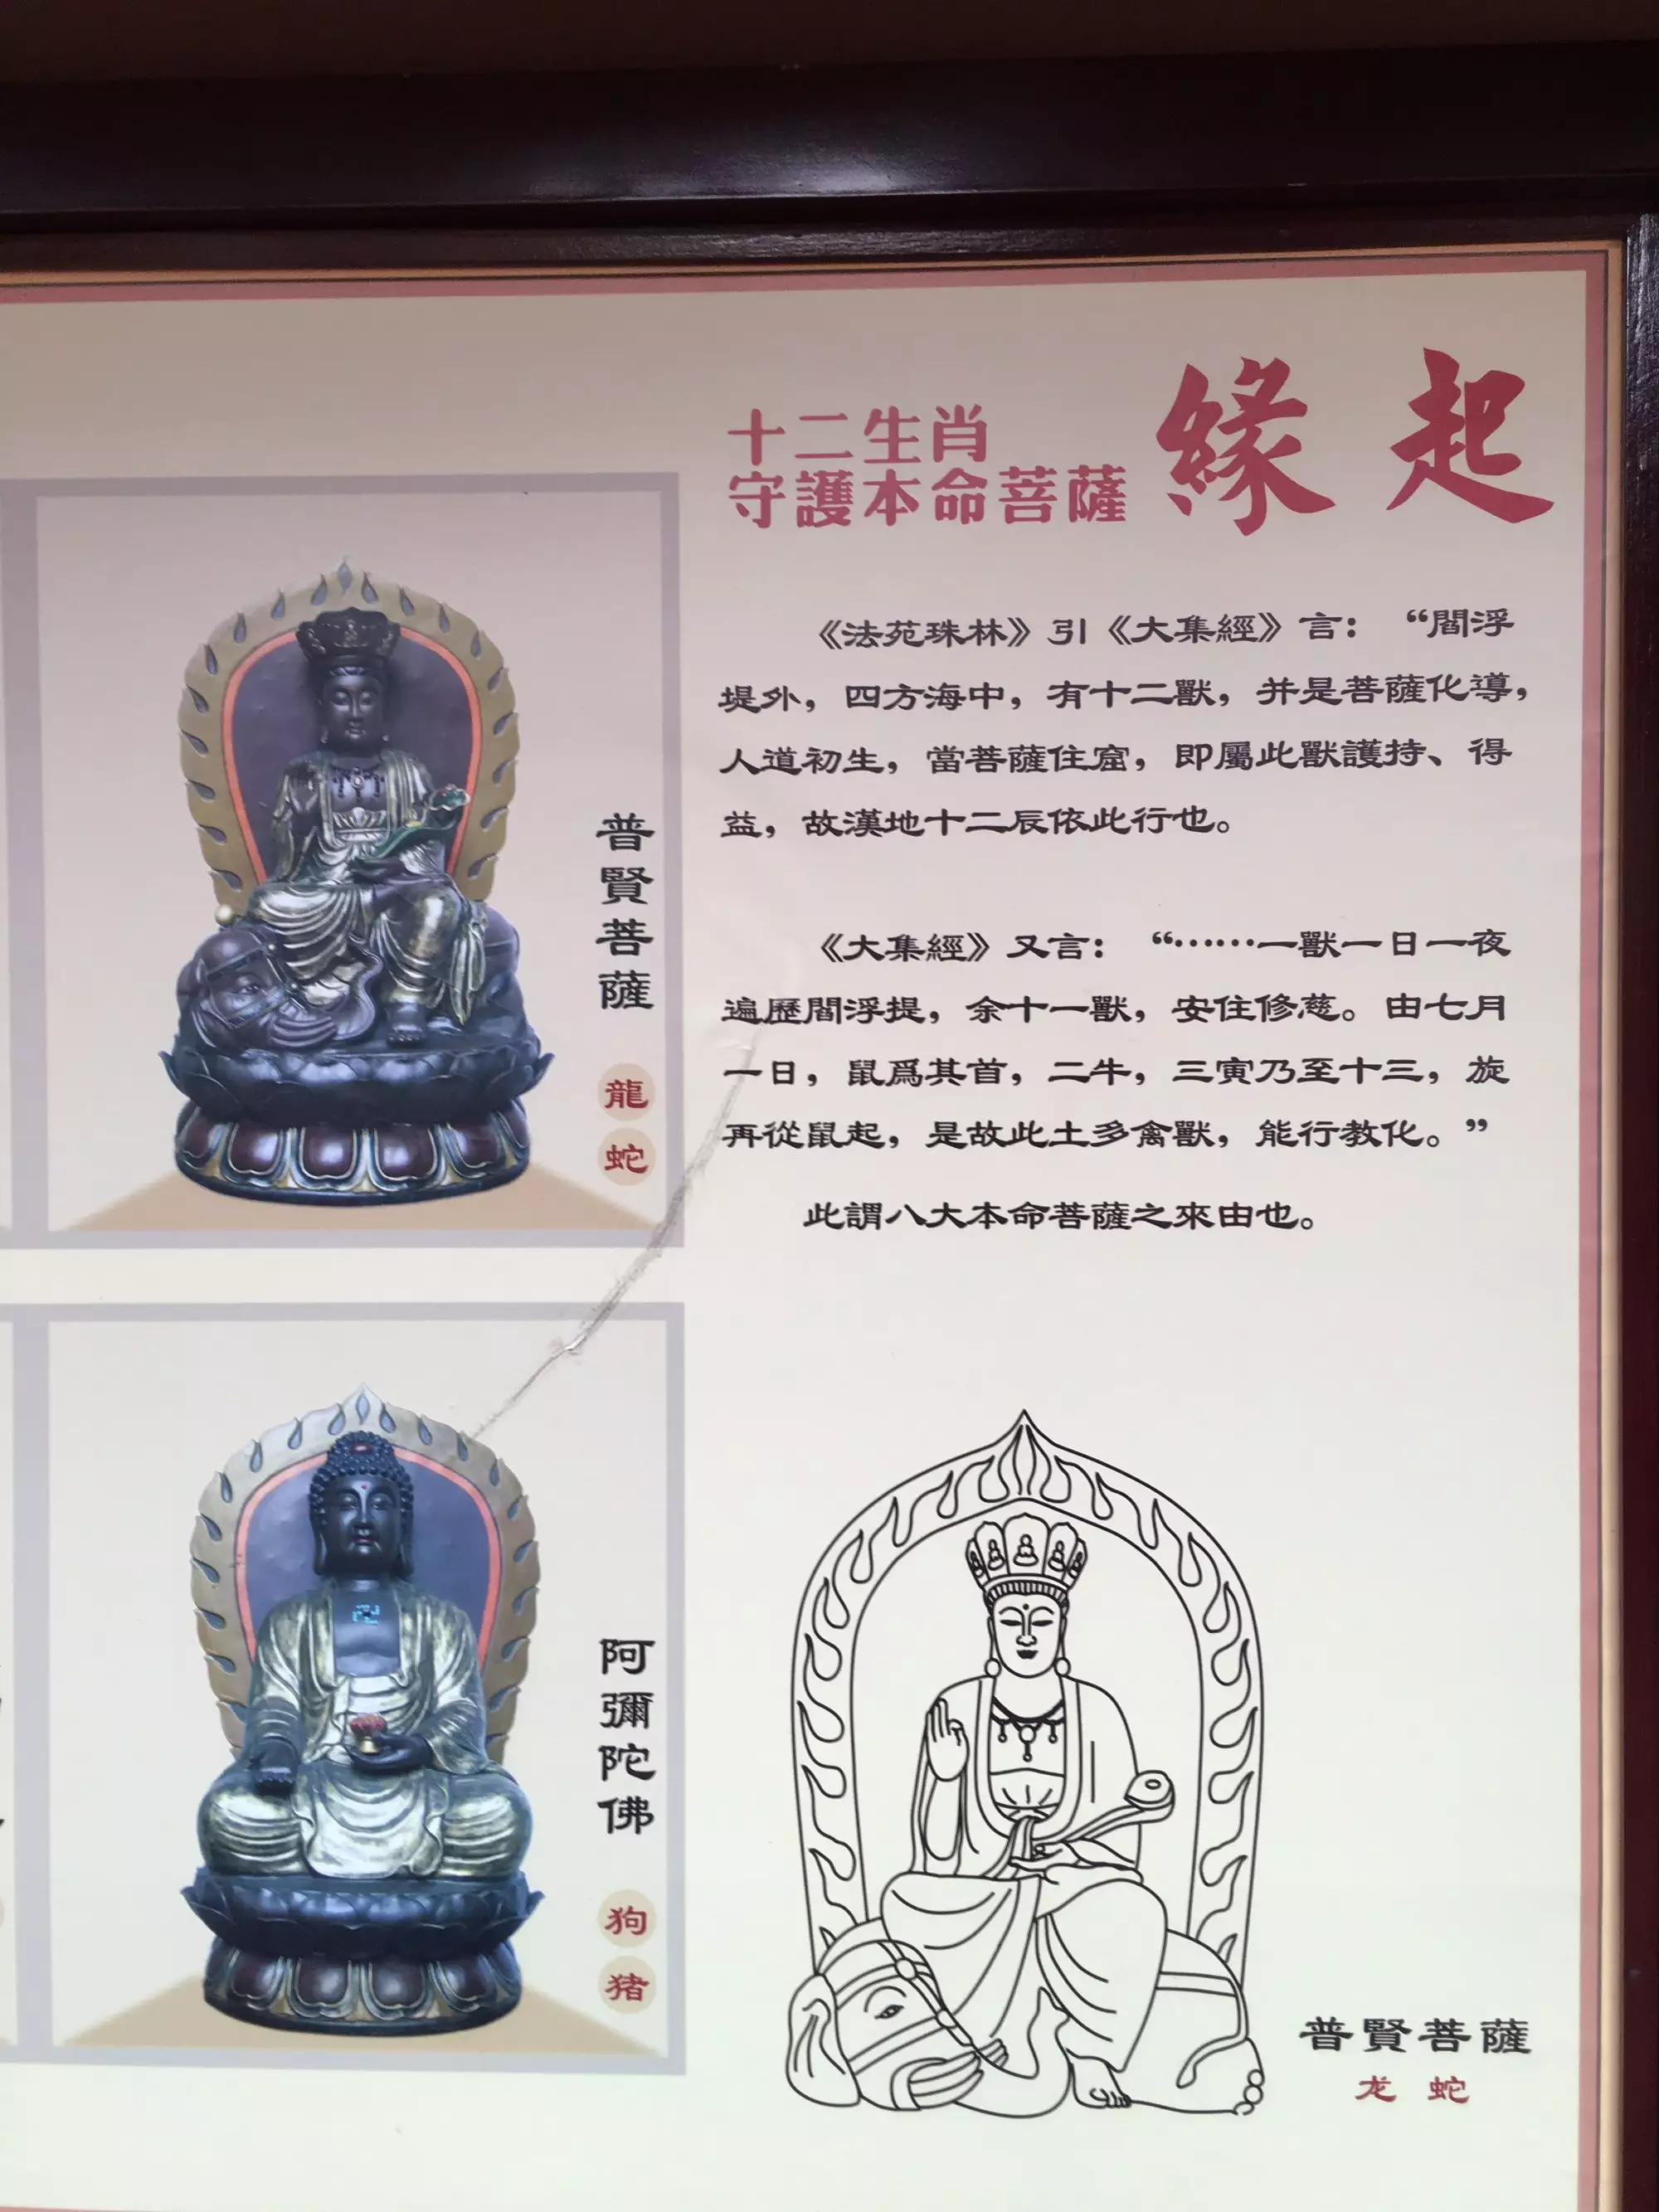 十二生肖
守護本命菩薩
緣起
《法苑珠林》引《大集經》言：“閻浮
堤外，四方海中，有十二獸，并是菩薩化導，
人道初生，當菩薩住窟，即屬此獸護持、得
益，故漢地十二辰依此行也。
《大集經》又言：“……一獸一日一夜
遍歷閻浮提，余十一獸，安住修慈。由七月
一日，鼠爲其首，二牛，三寅乃至十三，旋
再從鼠起，是故此土多禽獸，能行教化。”
此謂八大本命菩薩之來由也。
普賢菩薩
龍
蛇
阿彌陀佛
狗
猪
普賢菩薩
龙 蛇